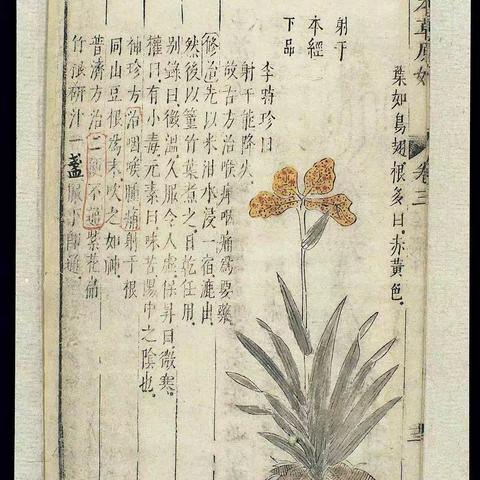 本草原始 卷三
葉如鳥翅根多曰赤黃色
射干
本經
下品
李時珍曰
射干能降火
故古方治喉痺咽痛爲要藥
修治先以米泔水浸一宿漉出
然後以䈽竹葉煮之日乾任用
别錄曰微溫久服令人虛保昇曰微寒
權曰有小毒元素曰味苦陽中之陰也
神珍方治咽喉腫痛射干根
同山豆根爲末吹之如神
普濟方治二便不通紫花扁
竹根研汁一盞服下即通